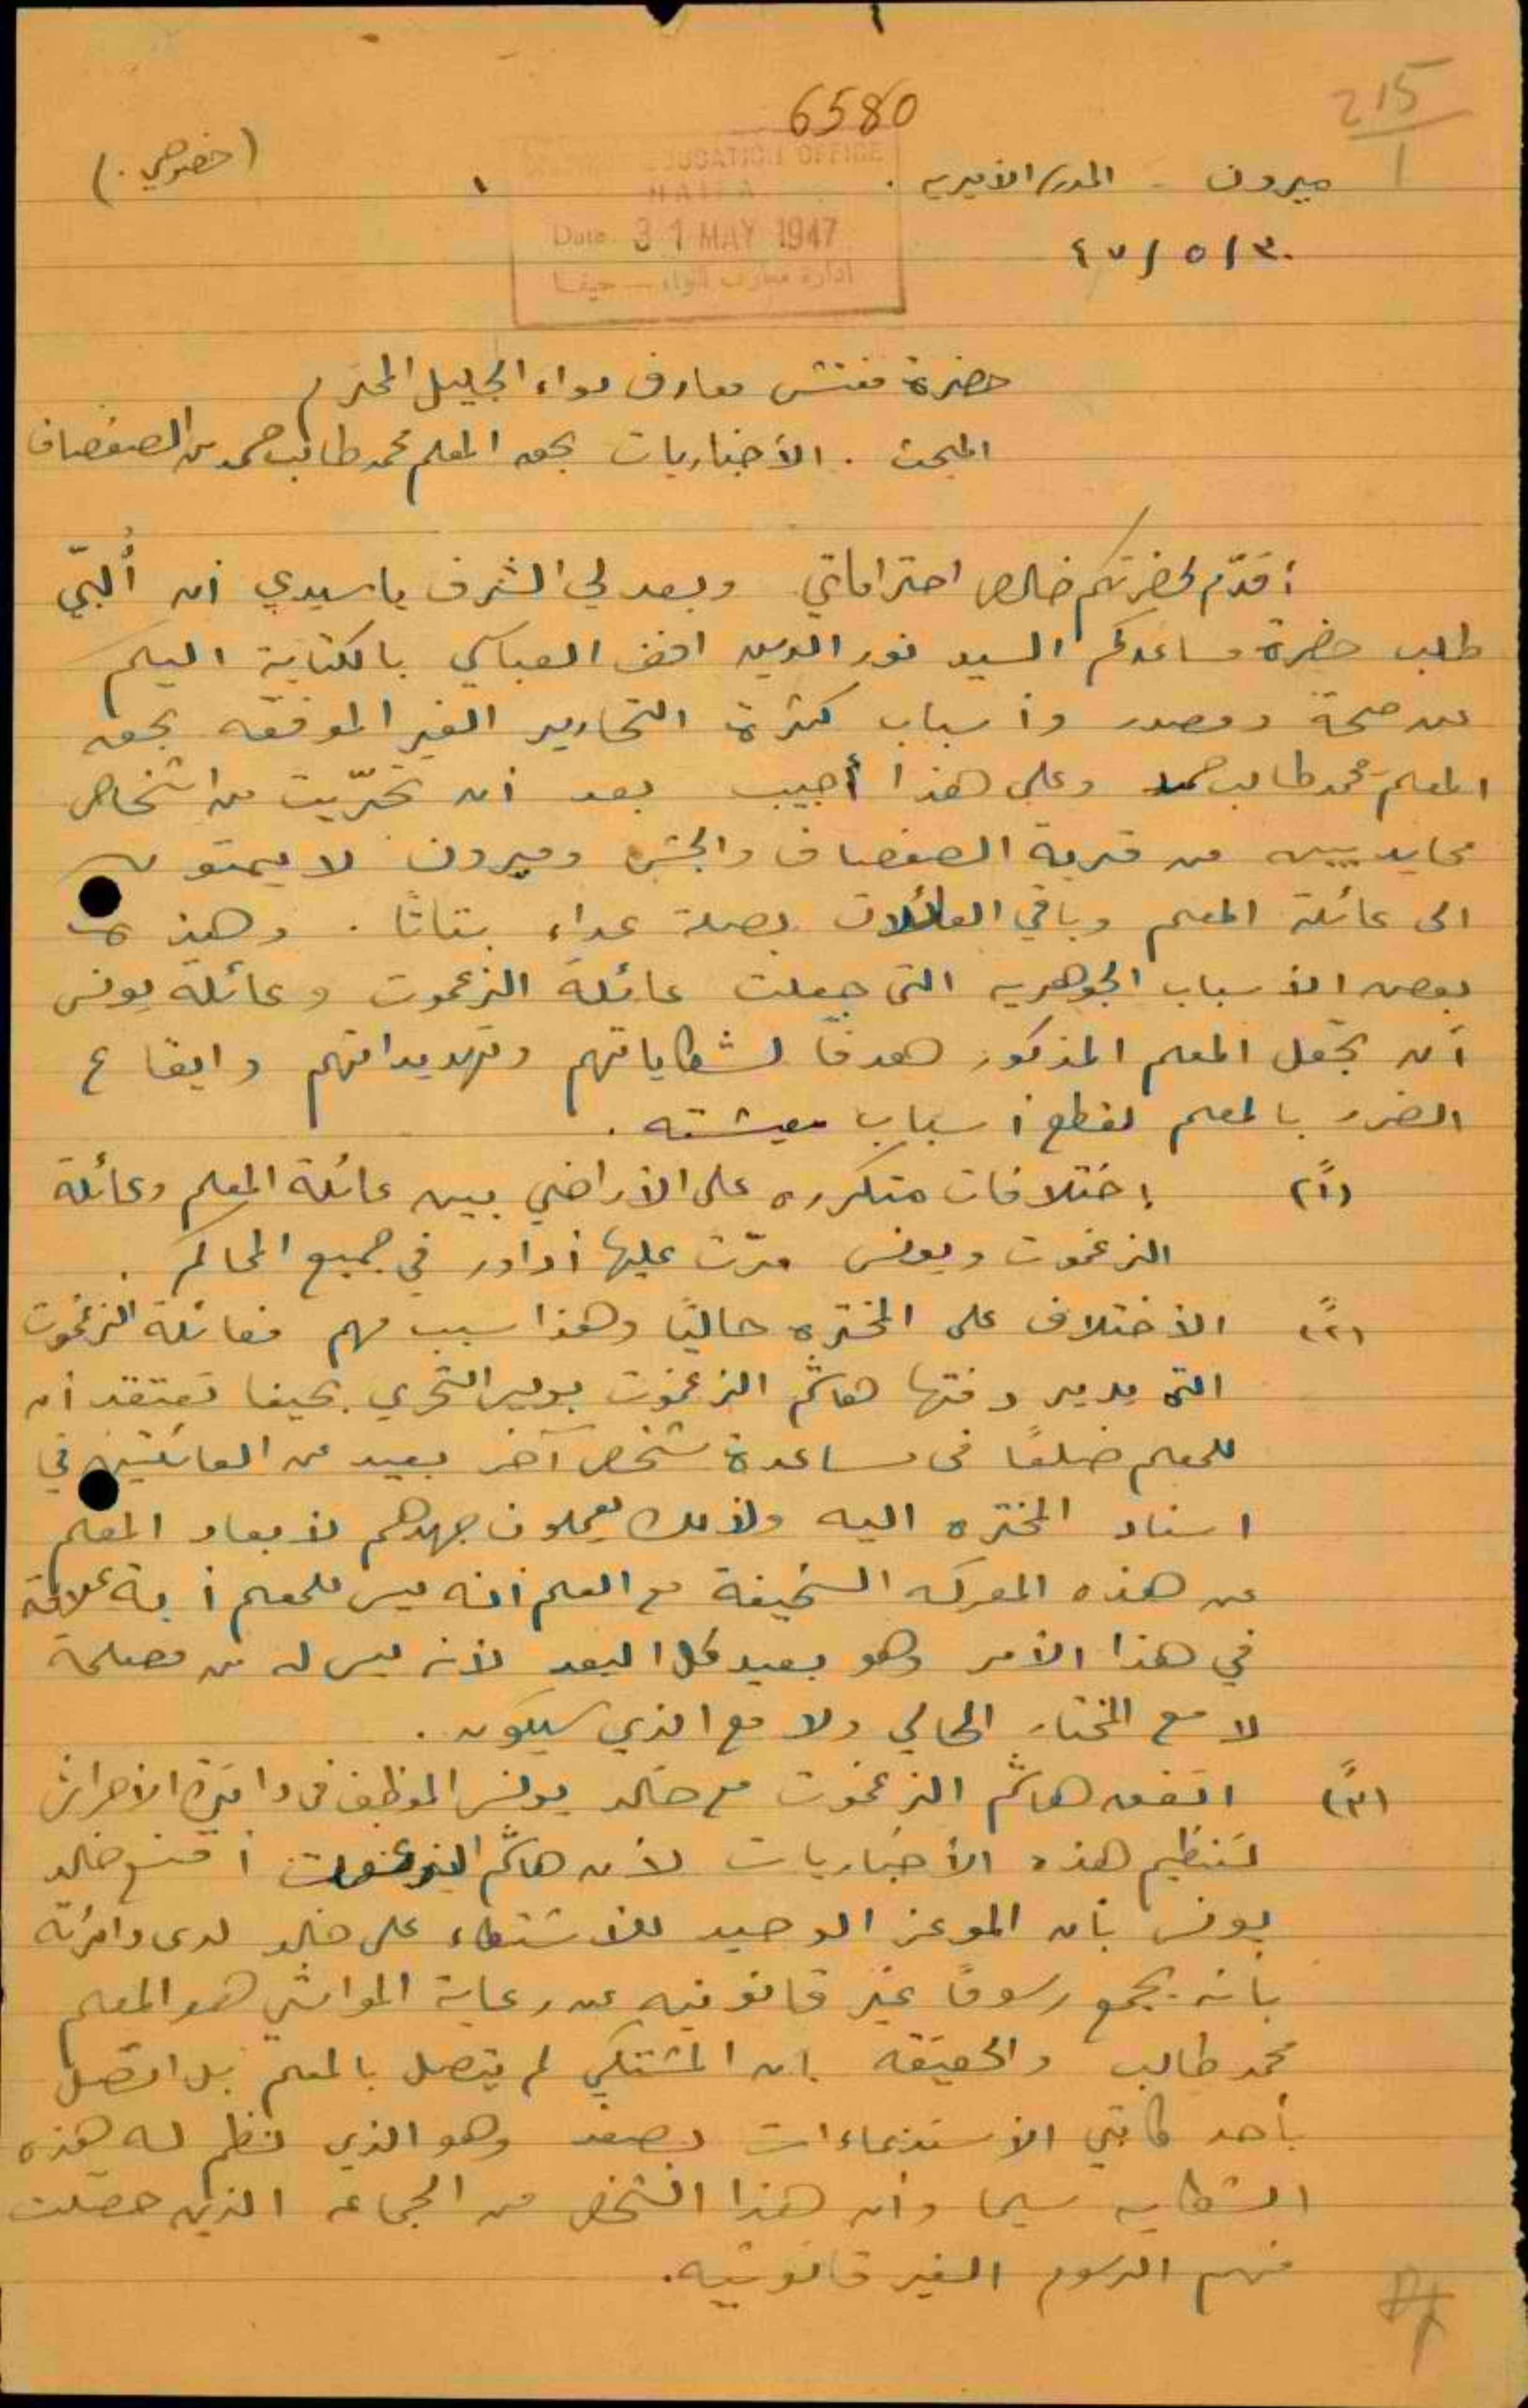 215
1
6580
EDUCATION OFFICE
HAIFA
Date 31 MAY 1947
ادارة معارف اللواء — حيفا
(خصوصي.)
ميرون - المدرسة الأميرية.
٣٠/٥/٤٧
حضرة مفتش معارف لواء الجليل المحترم
المبحث. الأخباريات بحق المعلم محمد طالب حمد من الصفصاف
أقدّم لحضرتكم خالص احتراماتي وبعد لي الشرف يا سيدي أن أُلبّي
طلب حضرة مساعدكم السيد نور الدين العباسي بالكتابة اليكم
عن صحة ومصدر وأسباب كثرة التحارير الغير الموقعه بحق
المعلم محمد طالب حمد وعلى هذا أجيب بعد أن تحرّيت من اشخاص
محايديين من قرية الصفصاف والجش وميرون لا يمتون
الى عائلة المعلم وباقي العائلات بصلة عداء بتاتاً. وهذه
بعض الأسباب الجوهريه التي جعلت عائلة الزغموت وعائلة يونس
أن تجعل المعلم المذكور هدفاً لشكاياتهم وتهديداتهم وايقاع
الضرر بالمعلم لقطع أسباب معيشته.
(١ً) إختلافات متكرره على الأراضي بين عائلة المعلم وعائلة
الزغموت ويونس مرّت عليها أدوار في جميع المحاكم.
(٢ً) الأختلاف على المختره حالياً وهذا سبب مهم فعائلة الزغموت
التي يدير دفتها هاشم الزغموت بوليس التحري بحيفا تعتقد أن
للمعلم ضلعاً في مساعدة شخص آخر بعيد من العائلتين في
اسناد المختره اليه ولذلك يعملون جهدهم لأبعاد المعلم
عن هذه المعركه السخيفة مع العلم أنه ليس للمعلم أية علاقة
في هذا الأمر وهو بعيد كل البعد لأنه ليس له من مصلحة
لا مع المختار الحالي ولا مع الذي سيكون.
(٣ً) اتفق هاشم الزغموت مع خالد يونس الموظف في دائرة الأحراش
لتنظيم هذه الأخباريات لأن هاشم الزغموت أقنع خالد
يونس بأن الموعز الوحيد للأشتكاء على خالد لدى دائرته
بأنه يجمع رسوماً غير قانونيه عن رعاية المواشي هو المعلم
محمد طالب والحقيقه ان المشتكي لم يتصل بالمعلم بل اتصل
بأحد كاتبي الأستدعاءات بصفد وهو الذي نظم له هذه
الشكايه سيما وأن هذا الشخص من الجماعه الذين حصلت
منهم الرسوم الغير قانونيه.